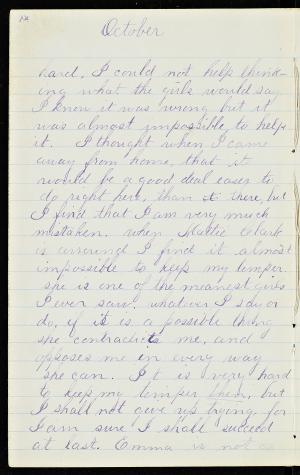 12
October
hard. I could not help think-
ing what the girls would say
I know it was wrong but it
was almost impossible to help
it. I thought when I came
away from home, that it
would be a good deal easer to
do right here, than it there, but
I find that I am very much
mistaken. When Mattie Clark
is arround I find it almost
impossible to keep my temper.
she is one of the meanest girls
I ever saw. whatever I say or
do, if it is a possible thing
she contradicts me, and
opposes me in every way
she can. It is very hard
to keep my temper then, but
I shall not give up trying, for
I am sure I shall succeed
at last. Emma is not